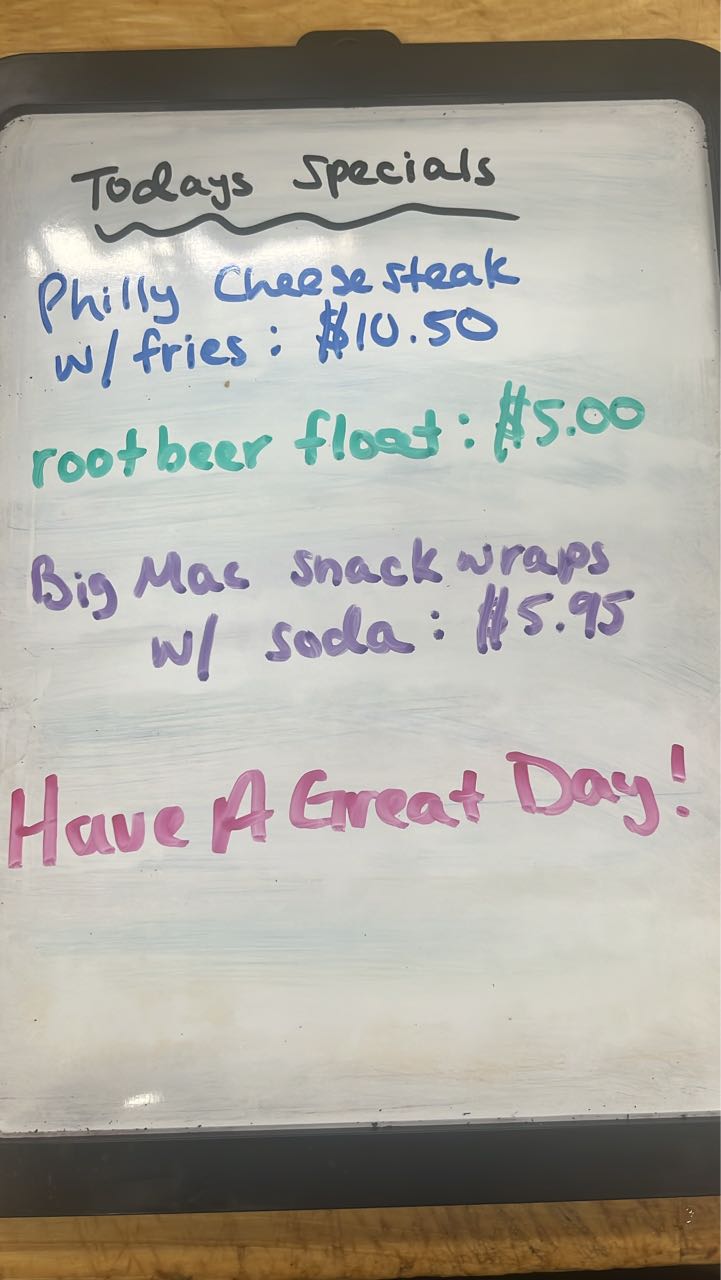 Todays Specials
Philly Cheesesteak
w/fries: $10.50
rootbeer float: $5.00
Big Mac snack wraps
w/ soda: $5.95
Have A Great Day!